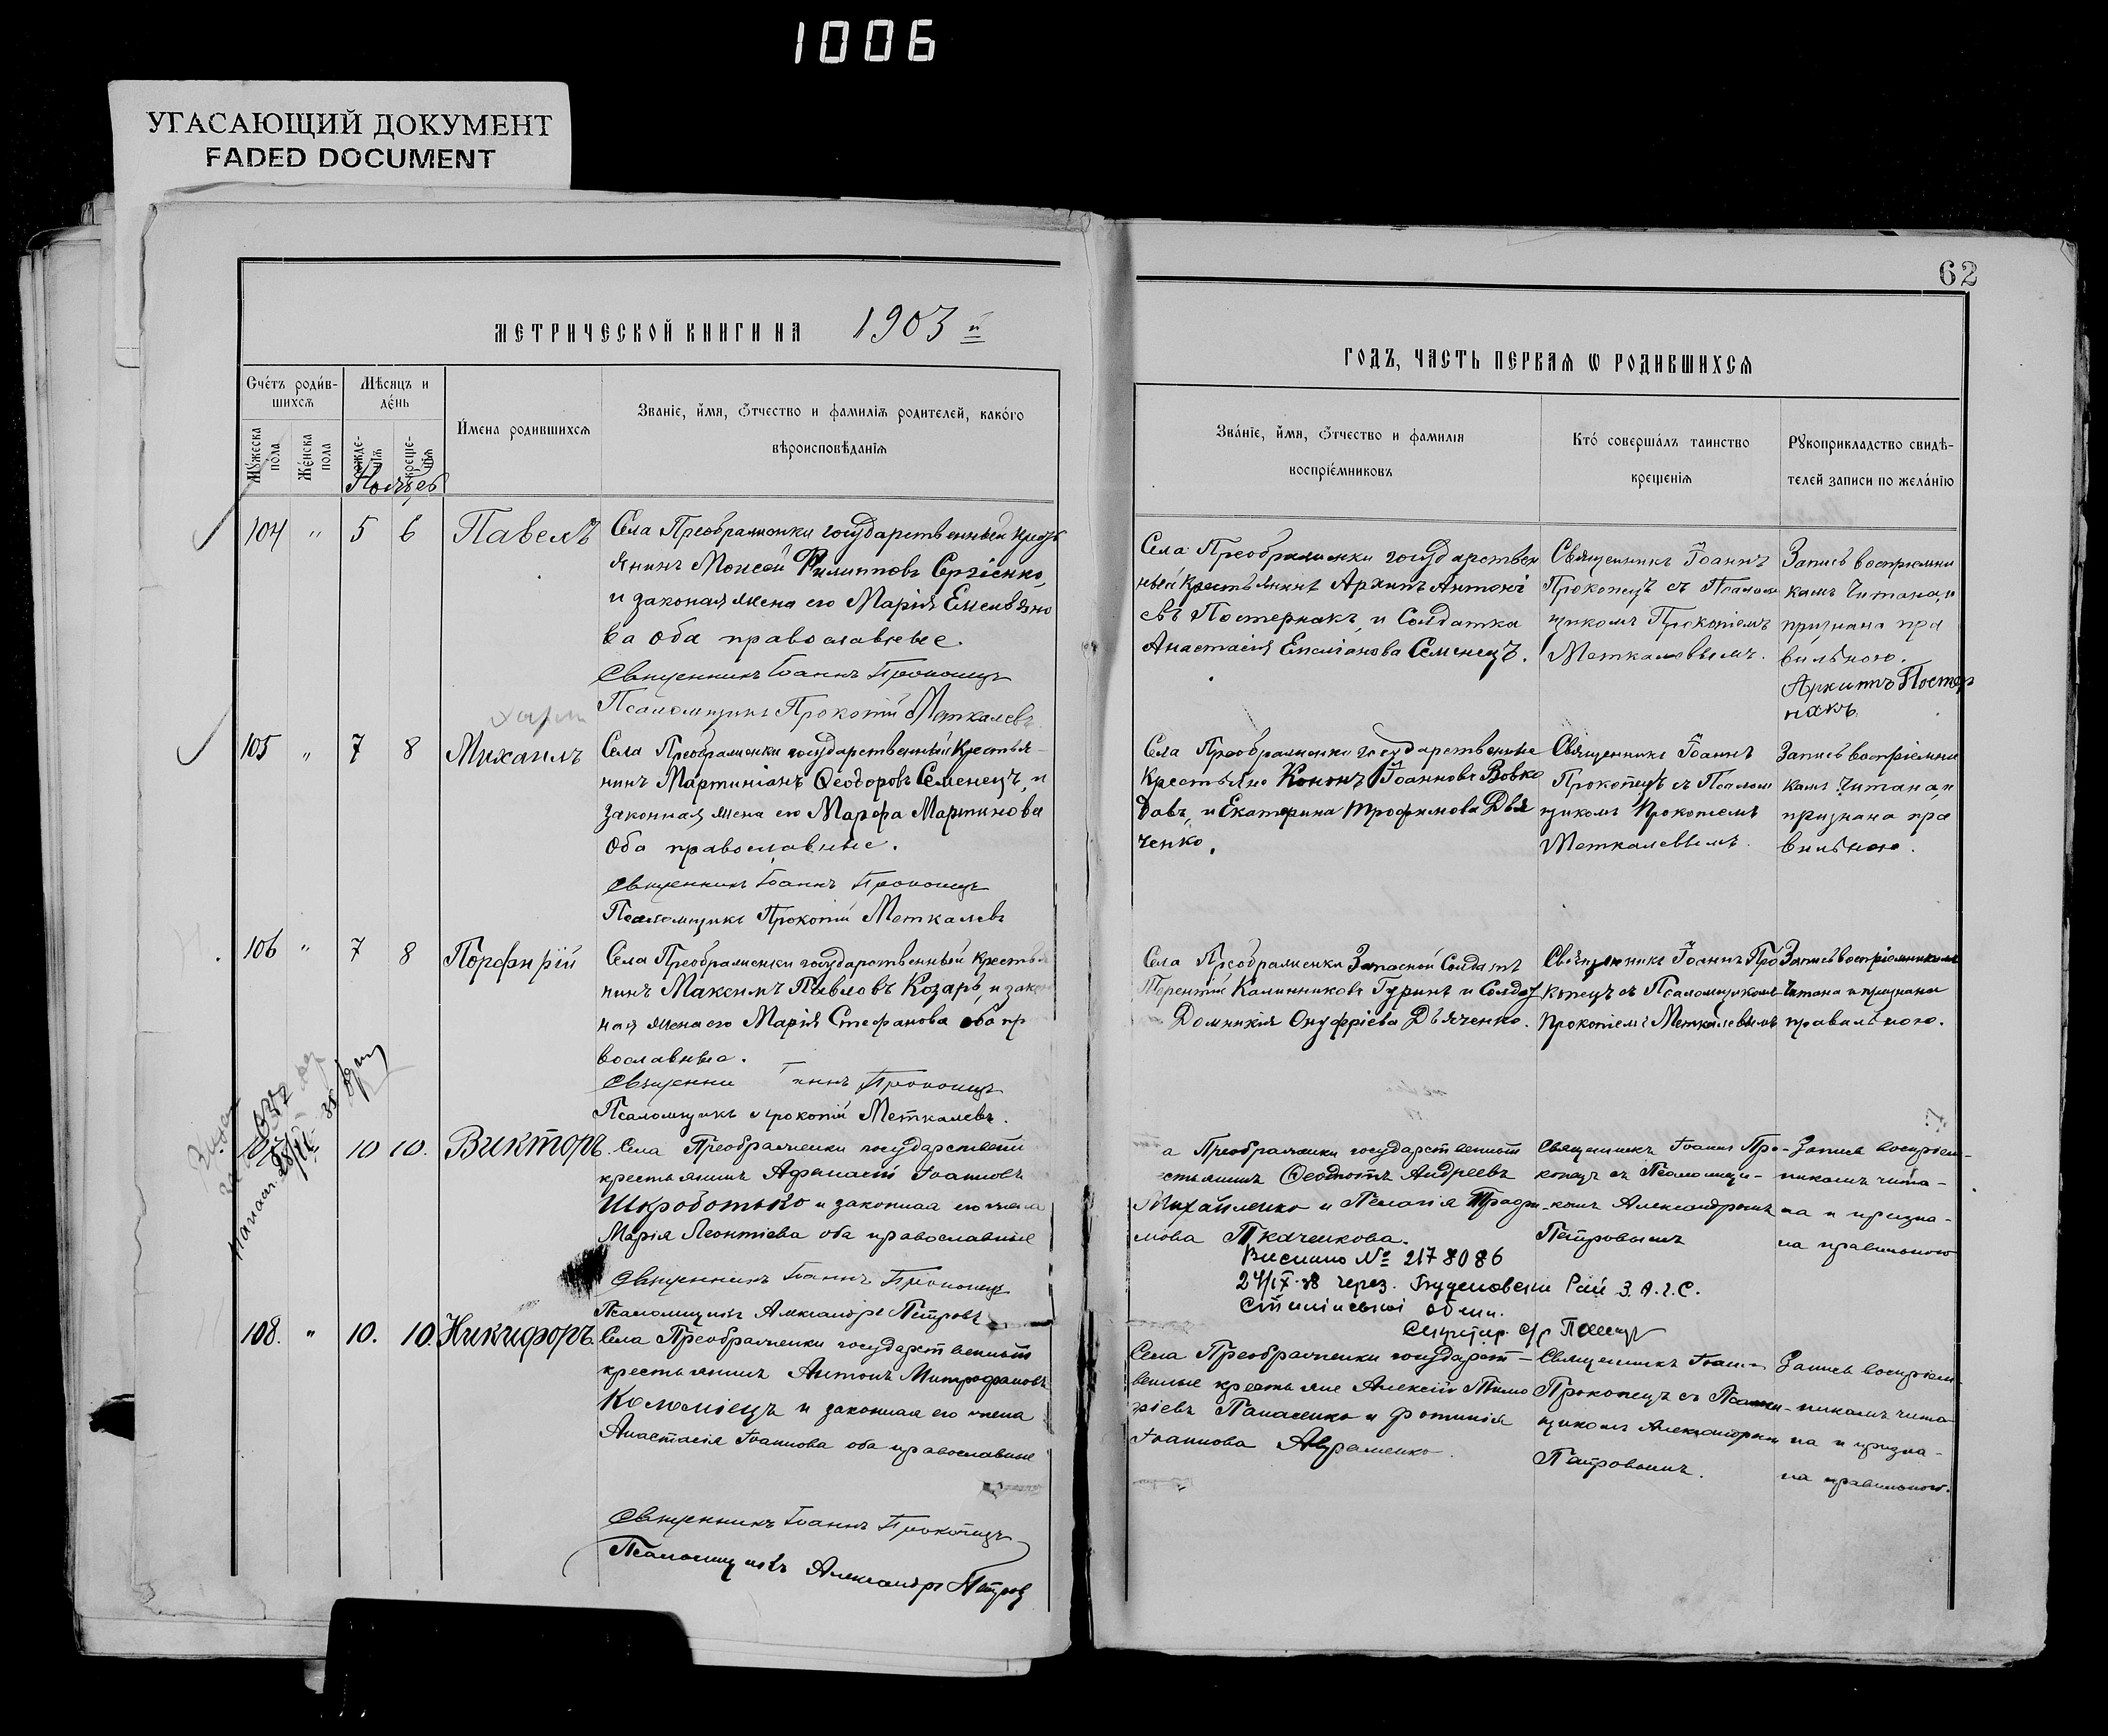 1006
УГАСАЮЩИЙ ДОКУМЕНТ
FADED DOCUMENT
62
МЕТРИЧЕСКОЙ КНИГИ НА 1903 й
ГОДЪ, ЧАСТЬ ПЕРВАѦ Ѡ РОДИВШИХСѦ
Счетъ родив-
шихсѧ
Мѣсяцъ и
день
Мужеска
пола
Женска
пола
рожде-
нїѧ
креще-
нїѧ
Имена родившихсѧ
Званїе, имя, ѿчество и фамилїѧ родителей, какого
вѣроисповѣданїѧ
Званїе, имя, ѿчество и фамилїѧ
воспрїемниковъ
Кто совершалъ таинство
крещенїѧ
Рукоприкладство свидѣ-
телей записи по желанїю
104 " 5 6 Павелъ
Села Преображенки государственный кресть
янинъ Моисей Филипповъ Сергіенко,
и законая жена его Марія Емелвяно
ва оба православные.
Священникъ Іоаннъ Прокопецъ
Псаломщикъ Прокопій Меткалевъ
Села Преображенки государствен
ный Крестьянинъ Архипъ Антоні
евъ Постернакъ, и Солдатка
Анастасія Емеліанова Семенецъ.
Священникъ Іоаннъ
Прокопецъ съ Псалом
щикомъ Прокопіемъ
Меткалевымъ.
Запись воспріемни
камъ Читана, и
признана пра
вильною.
Архипъ Постер
накъ
105 " 7 8 Михаилъ
Села Преображенки государственный Крестья-
нинъ Мартиніанъ Ѳеодоровъ Семенецъ, и
законная жена его Марфа Мартинова
оба православные.
Священникъ Іоаннъ Прокопецъ
Псаломщикъ Прокопій Меткалевъ
Села Преображенки государственные
Крестьяне Кононъ Іоанновъ Вовко
давъ, и Екатерина Трофимова Дья
ченко.
Священникъ Іоаннъ
Прокопецъ съ Псалом
щикомъ Прокопіемъ
Меткалевымъ.
Запись воспріемни
камъ Читана, и
признана пра
вильною.
106 " 7 8 Порфирій
Села Преображенки государственный крестья
нинъ Максимъ Павловъ Козарь, и закон
ная жена его Марія Стефанова оба пр
вославные.
Священни аннъ Прокопецъ
Псаломщикъ Прокопій Меткалевъ.
Села Преображенки Запасной Солдатъ
Терентій Калинниковъ Гуринъ и Солдат
Домникія Онуфріева Дьяченко.
Священникъ Іоаннъ Про
копецъ съ Псаломщикомъ
Прокопіемъ Меткалевымъ
Запись воспріемникамъ
Читана и признана
правильною.
10 10. Викторъ
Села Преображенки государствен
крестьянинъ Афанасій Іоанновъ
Шкроботько и законная его жена
Марія Леонтіева оба православные
Священникъ Іоаннъ Прокопецъ
Псаломщикъ Александръ Петровъ
а Преображенки государственный
стьянинъ Ѳеодотъ Андреевъ
Михайленко и Пелагія Трофи
мова Ткаченкова.
Священникъ Іоаннъ Про-
копецъ съ Псаломщи-
комъ Александромъ
Петровымъ
Запись воспріем-
никамъ чита-
на и призна-
на правильною
Вислано № 2178086
24/IX-38 через. Будёновский Рай З.А.Г.С.
108. " 10. 10. Никифоръ.
Села Преображенки государственный
крестьянинъ Антонъ Митрофановъ
Коломіецъ и законная его жена
Анастасія Іоаннова оба православные
Священникъ Іоаннъ Прокопецъ
Псаломщикъ Александръ Петров
Села Преображенки государст-
венные крестьяне Алексій Тимо
фіевъ Панасенко и Фотинія
Іоаннова Авраменко.
Священникъ Іоаннъ
Прокопецъ съ Псалом-
щикомъ Александромъ
Петровымъ.
Запись воспріем-
никамъ чита-
на и призна-
на правильною.